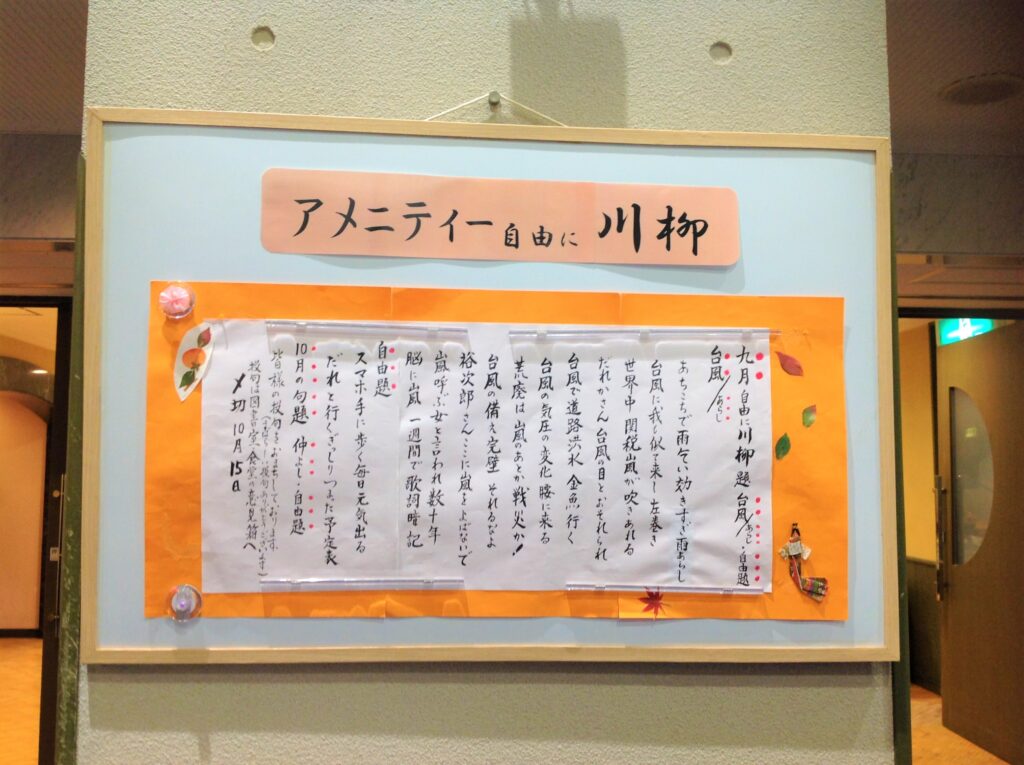 アメニティー自由に川柳
九月自由に川柳題 台風/あらし・自由題
台風/あらし
あちこちで雨乞い効きすぎ雨あらし
台風に我も似て来し左巻き
世界中関税嵐が吹きあれる
だれかさん台風の目とおそれられ
台風で道路洪水金魚行く
台風の気圧の変化腰に来る
荒廃は嵐のあとか戦火か!
台風の備え完璧それるなよ
裕次郎さんここに嵐をよばないで
嵐呼ぶ女と言われ数十年
脳に嵐一週間で歌詞暗記
自由題
スマホ手に歩く毎日元気出る
だれと行くぎっしりつまった予定表
10月の句題 仲よし・自由題
皆様の投句をおまちしております
投句は図書室、食堂の意見箱へ
〆切10月15日